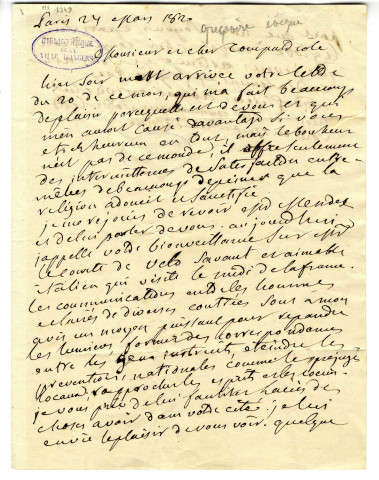 Paris 24 Mars 1820
Grégoire évêque
BIBLIOTHÈQUE
DE LA
VILLE
Monsieur et cher
hier soir m'est arrivée votre lettre
du 20 de ce mois, qui m'a fait beaucoup
de plaisir parcequ'elle est de vous et qui
m'en auroit causé davantage si vous
etiez heureux en tout, mais le bonheur
n'est pas de ce monde il offre seulement
des intermittences de satisfaction entre-
mêlées de beaucoup de peines que la
religion adoucit et sanctifie
je me rejouis de revoir Mendez
et de lui parler de vous. aujourdhui
j'appelle votre bienveillance sur Mr
le comte de Velo savant et aimable
italien qui visite le midi de la france.
les communications entre les hommes
eclairés de diverses contrées sont a mon
avis un moyen puissant pour repandre
les lumieres, former des correspondances
entre les gens instruits, eteindre les
preventions nationales comme les prejugés
locaux, rapprocher les esprits et les coeurs
je vous prie de lui faciliter l'accès des
choses a voir dans votre cité. je lui
envie le plaisir de vous voir. quelque